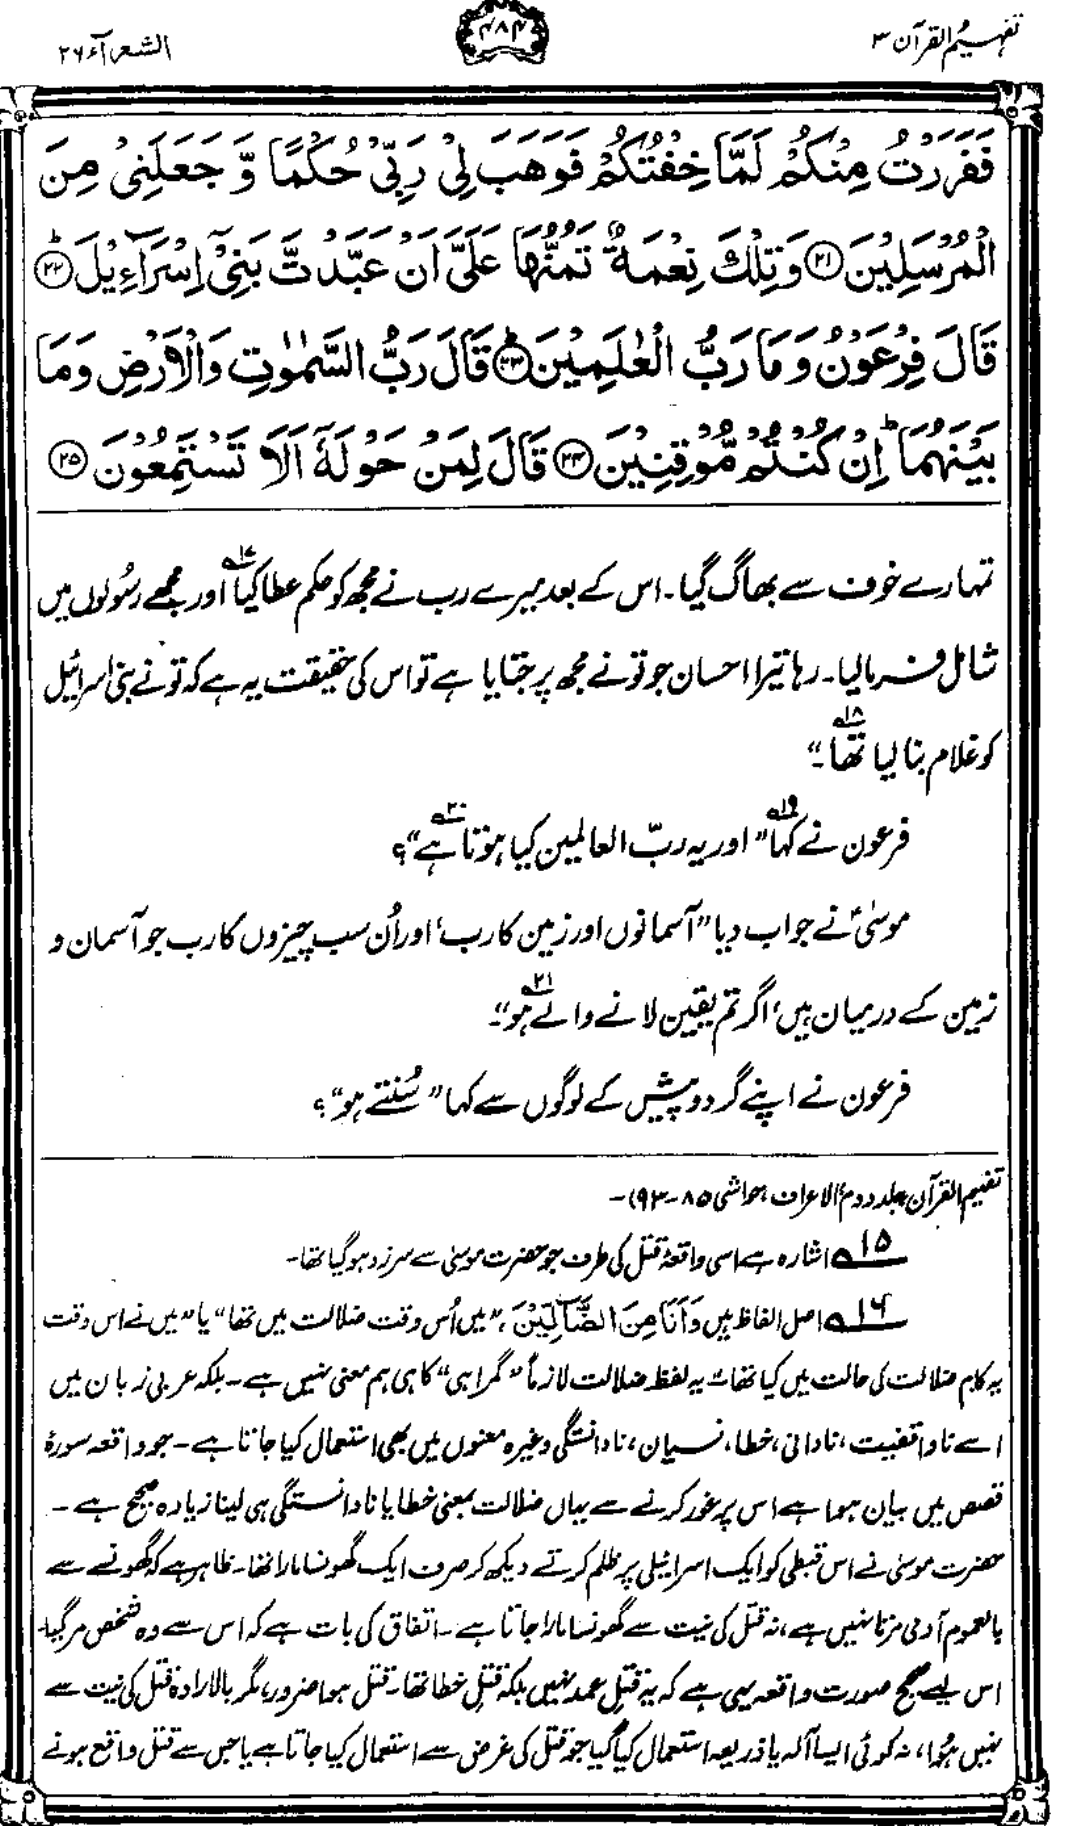 تفہیم القرآن ۳
۴۸۴
الشعرآء ۲۶
فَفَرَرْتُ مِنْكُمْ لَمَّا خِفْتُكُمْ فَوَهَبَ لِيْ رَبِّيْ حُكْمًا وَّ جَعَلَنِيْ مِنَ
الْمُرْسَلِيْنَ ﴿۲۱﴾ وَتِلْكَ نِعْمَةٌ تَمُنُّهَا عَلَيَّ اَنْ عَبَّدْتَّ بَنِيْٓ اِسْرَآءِيْلَ ؕ ﴿۲۲﴾
قَالَ فِرْعَوْنُ وَ مَا رَبُّ الْعٰلَمِيْنَ ؕ ﴿۲۳﴾ قَالَ رَبُّ السَّمٰوٰتِ وَالْاَرْضِ وَمَا
بَيْنَهُمَا ؕ اِنْ كُنْتُمْ مُّوْقِنِيْنَ ﴿۲۴﴾ قَالَ لِمَنْ حَوْلَهٗٓ اَلَا تَسْتَمِعُوْنَ ﴿۲۵﴾
تمہارے خوف سے بھاگ گیا۔ اس کے بعد میرے رب نے مجھ کو حکم عطا کیا۱۷؎ اور مجھے رسُولوں میں
شامل فرمالیا۔ رہا تیرا احسان جو تو نے مجھ پر جتایا ہے تو اس کی حقیقت یہ ہے کہ تو نے بنی اسرائیل
کو غلام بنا لیا تھا۱۸؎۔“
فرعون نے کہا۱۹؎ ”اور یہ ربّ العالمین کیا ہوتا ہے۲۰؎“؟
موسٰیؑ نے جواب دیا ”آسمانوں اور زمین کا رب، اور اُن سب چیزوں کا رب جو آسمان و
زمین کے درمیان ہیں، اگر تم یقین لانے والے ہو۲۱؎“۔
فرعون نے اپنے گرد و پیش کے لوگوں سے کہا ”سُنتے ہو“؟
تفہیم القرآن جلد دوم، الاعراف، حواشی ۸۵-۹۳)۔
۱۵؎ اشارہ ہے اسی واقعۂ قتل کی طرف جو حضرت موسیٰ سے سرزد ہوگیا تھا۔
۱۶؎ اصل الفاظ ہیں وَاَنَا مِنَ الضَّآلِّيْنَ، ”میں اُس وقت ضلالت میں تھا“ یا ”میں نے اس وقت
یہ کام ضلالت کی حالت میں کیا تھا“۔ یہ لفظ ضلالت لازماً ”گمراہی“ کا ہی ہم معنی نہیں ہے۔ بلکہ عربی زبان میں
اسے ناواقفیت، نادانی، خطا، نسیان، نادانستگی وغیرہ معنوں میں بھی استعمال کیا جاتا ہے۔ جو واقعہ سورۂ
قصص میں بیان ہوا ہے اس پر غور کرنے سے یہاں ضلالت بمعنی خطا یا نادانستگی ہی لینا زیادہ صحیح ہے۔
حضرت موسیٰ نے اس قبطی کو ایک اسرائیلی پر ظلم کرتے دیکھ کر صرف ایک گھونسا مارا تھا۔ ظاہر ہے کہ گھونسے سے
بالعموم آدمی مرتا نہیں ہے، نہ قتل کی نیت سے گھونسا مارا جاتا ہے۔ اتفاق کی بات ہے کہ اس سے وہ شخص مر گیا۔
اس لیے صحیح صورت واقعہ یہی ہے کہ یہ قتلِ عمد نہیں بلکہ قتلِ خطا تھا۔ قتل ہوا ضرور، مگر بالارادہ قتل کی نیت سے
نہیں ہُوا، نہ کوئی ایسا آلہ یا ذریعہ استعمال کیا گیا جو قتل کی غرض سے استعمال کیا جاتا ہے یا جس سے قتل واقع ہونے